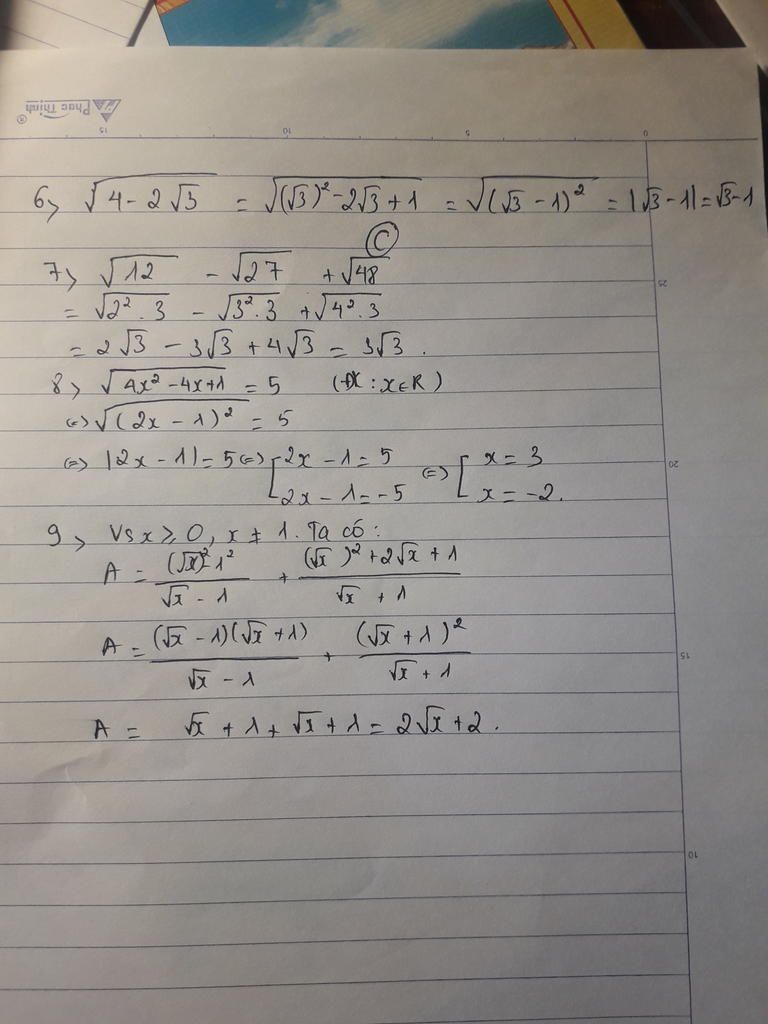 Phúc Thịnh®
15 10 5 0
6> √(4 - 2√3) = √((√3)² - 2√3 + 1) = √((√3 - 1)²) = |√3 - 1| = √3 - 1
Ⓒ
7> √12 - √27 + √48
25
= √(2².3) - √(3².3) + √(4².3)
= 2√3 - 3√3 + 4√3 = 3√3.
8> √(4x² - 4x + 1) = 5 (ĐK : x∈R)
<=> √((2x - 1)²) = 5
<=> |2x - 1| = 5 <=> [2x - 1 = 5 <=> [x = 3
20
2x - 1 = -5 x = -2.
9> Vs x ≥ 0, x ≠ 1. Ta có :
A = ((√x)² - 1²)/(√x - 1) + ((√x)² + 2√x + 1)/(√x + 1)
A = ((√x - 1)(√x + 1))/(√x - 1) + ((√x + 1)²)/(√x + 1)
15
A = √x + 1 + √x + 1 = 2√x + 2.
10